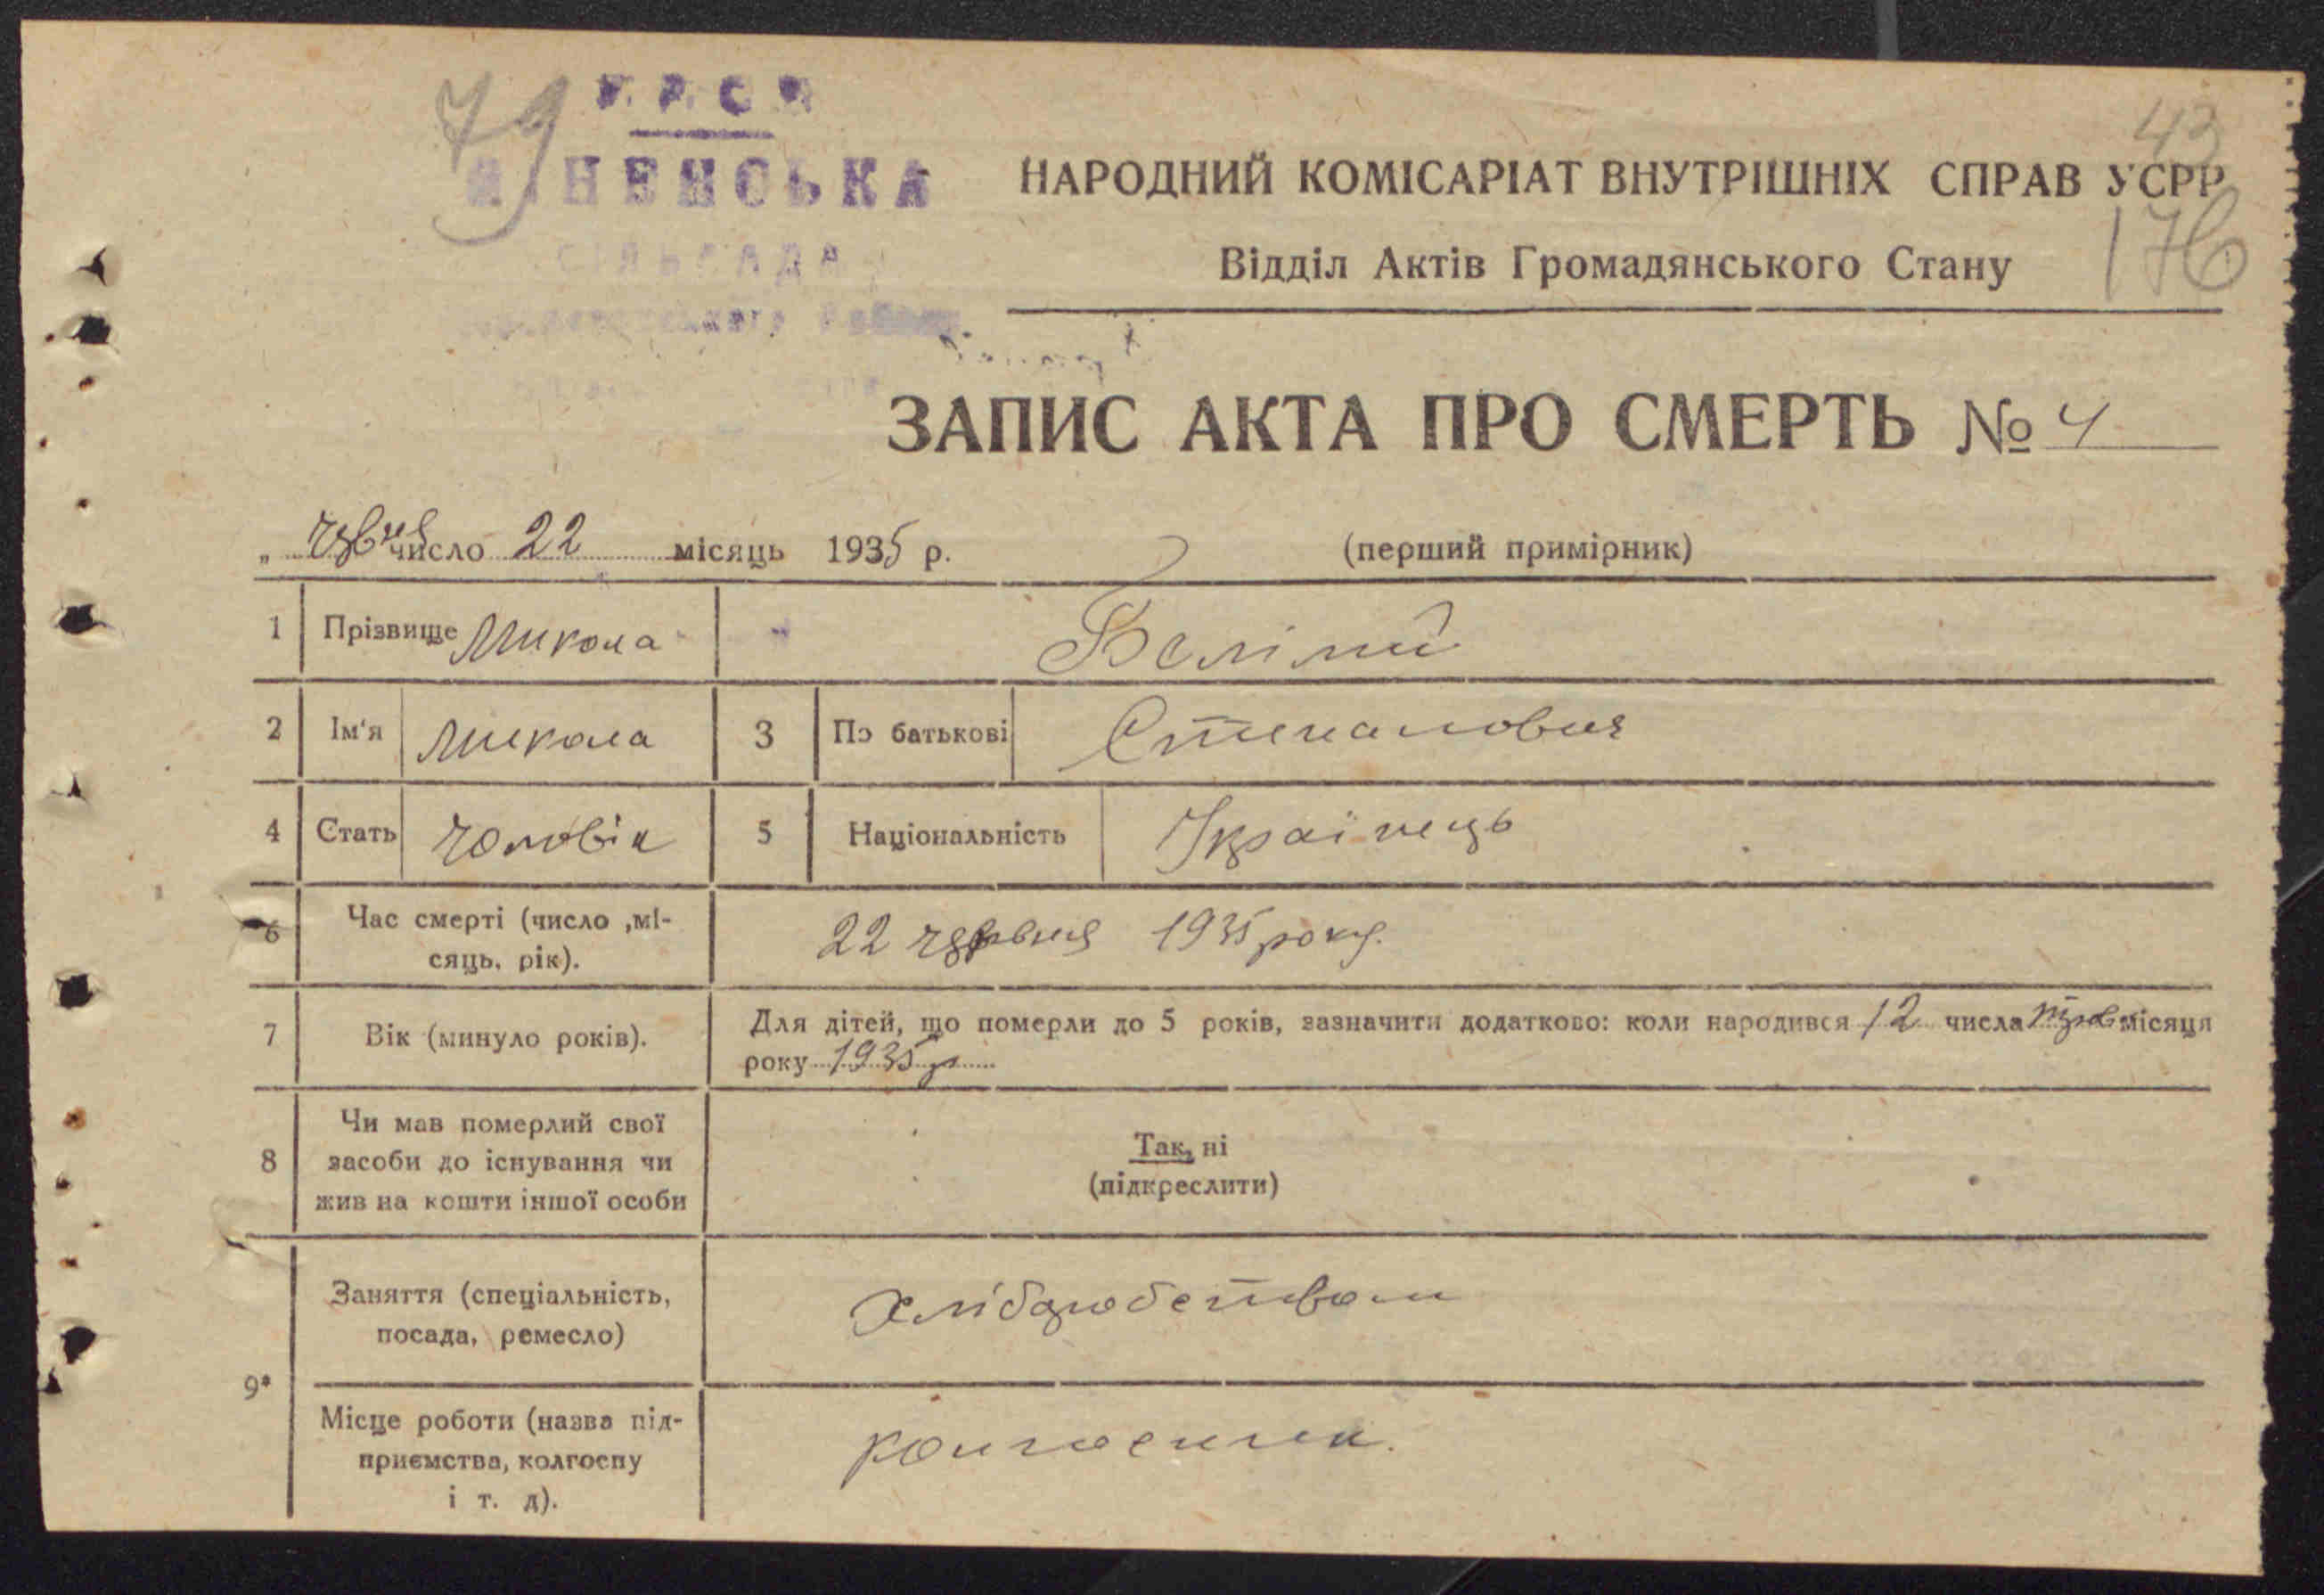 79
43
НАРОДНИЙ КОМІСАРІАТ ВНУТРІШНІХ СПРАВ УСРР
176
Відділ Актів Громадянського Стану
СІЛЬРАДА
ЗАПИС АКТА ПРО СМЕРТЬ № 4
„ число 22 місяць 1935 р.
(перший примірник)
1 Прізвище Микола
2 Ім'я Микола 3 По батькові Степанович
4 Стать чоловік 5 Національність Українець
6 Час смерті (число ,мі-
сяць, рік).
22 червня 1935 року.
7 Вік (минуло років).
Для дітей, що померли до 5 років, зазначити додатково: коли народився 12 числа трав місяця
року 1935 р
8 Чи мав померлий свої
засоби до існування чи
жив на кошти іншої особи
Так, ні
(підкреслити)
9*
Заняття (спеціальність,
посада, ремесло)
Хліборобством
Місце роботи (назва під-
приємства, колгоспу
і т. д).
колгоспник.